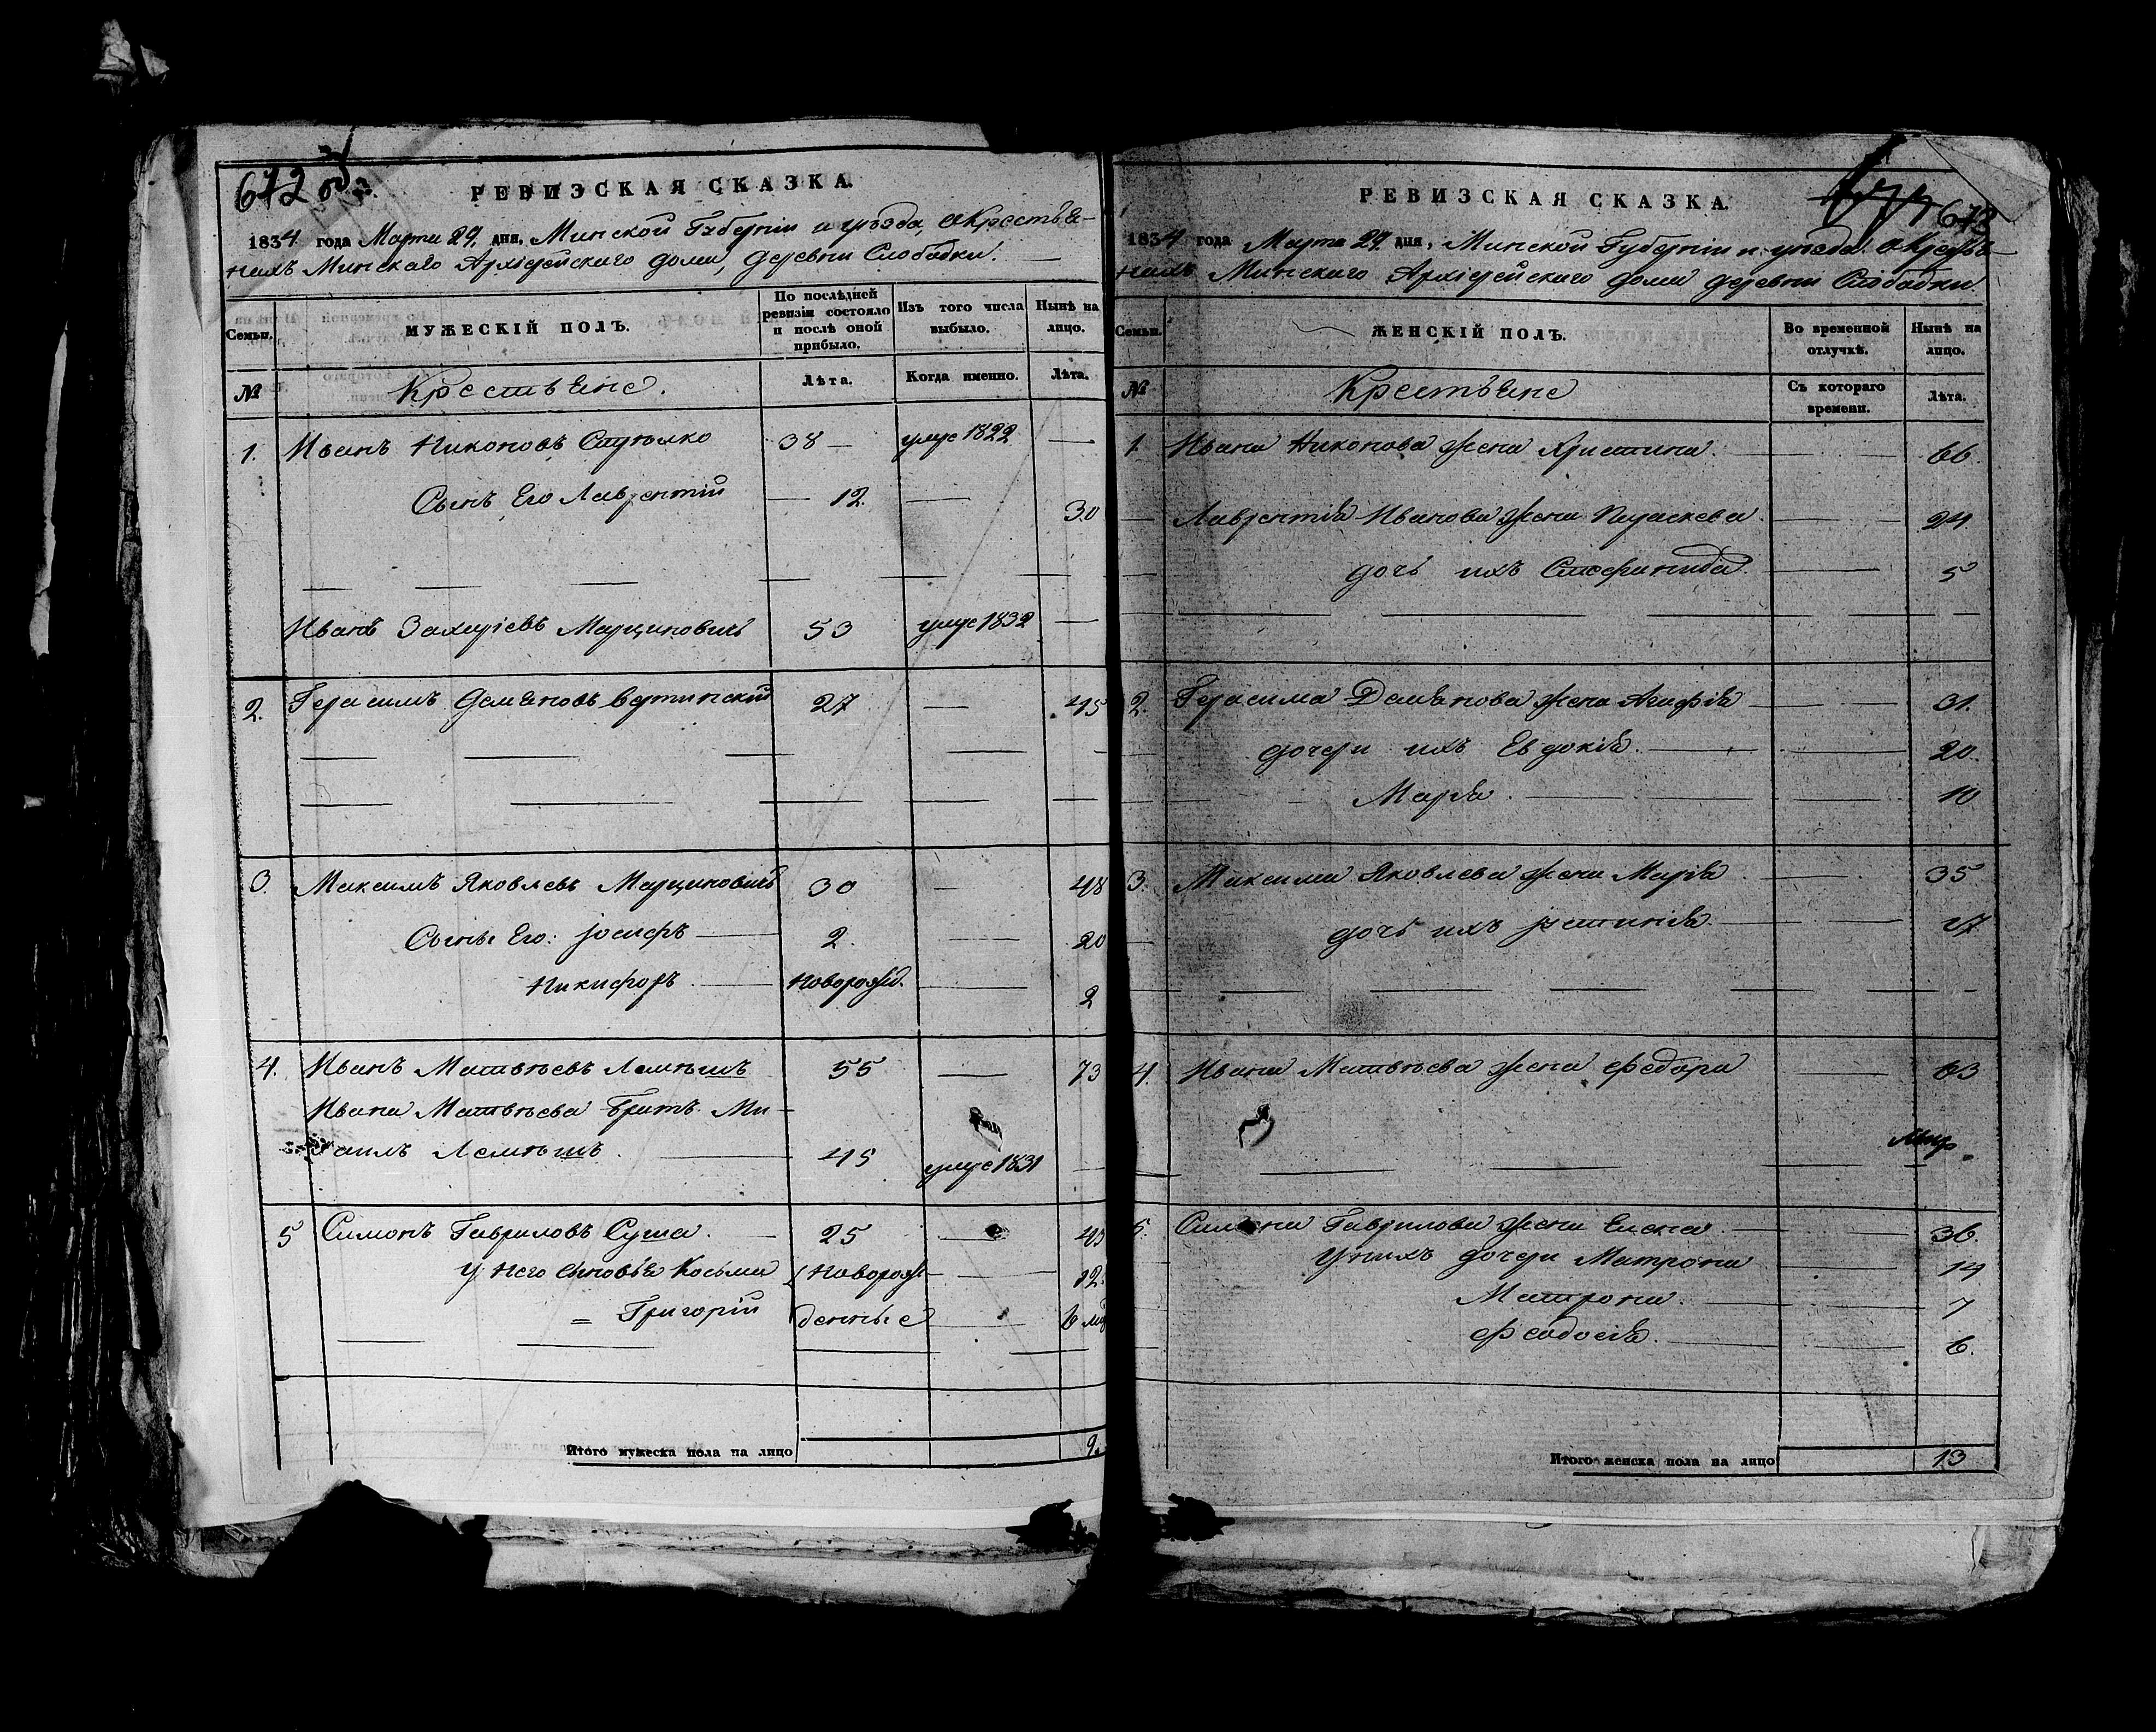 672 об.
РЕВИЗСКАЯ СКАЗКА.
1834 года Марта 29, дня, Минской Губерніи и уѣзда, о Крестья-
нахъ Минскаго Архіерейскаго дома, деревни Слободки.
Семьи.
МУЖЕСКІЙ ПОЛЪ.
По послѣдней ревизіи состояло и послѣ оной прибыло.
Изъ того числа выбыло.
Нынѣ на лицо.
№
Крестьяне.
Лѣта.
Когда именно.
Лѣта.
1. Иванъ Никоновъ 38 — умре 1822 —
Сынъ Его Лаврентій — 12. — 30
Иванъ Захаріевъ Марциновичъ 53 умре 1832 —
2. Герасимъ Демьяновъ Вертинскій 27 — 45
3. Максимъ Яковлевъ Марциновичъ 30 — 48
Сыны Его: Іосифъ — 2. — 20
Никифоръ — Коворожд. — 2
4. Иванъ Матвѣевъ Лемѣшъ 55 — 73
Ивана Матвѣева Братъ Ми-
хаилъ Лемѣшъ. — 45 умре 1831 —
5 Симонъ Гавриловъ Суша. — 25 — 43
У него сыновья Косьма Новорож- — 12.
= Григорій денные — 6 мѣ
Итого мужеска пола на лицо 9.
673
РЕВИЗСКАЯ СКАЗКА.
1834 года Марта 29 дня, Минской Губерніи и уѣзда о Кресть-
нахъ Минскаго Архіерейскаго дома деревни Слободки
Семьи.
ЖЕНСКІЙ ПОЛЪ.
Во временной отлучкѣ.
Нынѣ на лицо.
№
Крестьяне
Съ котораго времени.
Лѣта.
1 Ивана Никонова жена Христина. — 66
Лаврентія Иванова жена Параскева. — 24
дочь ихъ Стефанида. — 5
2. Герасима Демьянова жена Агафія — 31.
дочери ихъ Евдокія. — 20.
Марія. — 10
3. Максима Яковлева жена Марія — 35
дочь ихъ Іустинія. — 17
4. Ивана Матвѣева жена Федора — 63
5. Симона Гаврилова жена Елена. — 36.
У нихъ дочери Матрона — 14
Матрона. — 7
Феодосія. — 6.
Итого женска пола на лицо 13